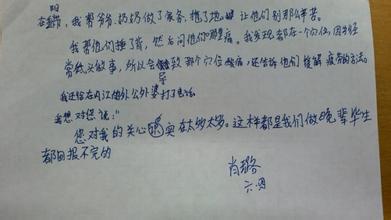 在家帮,我帮爷爷、奶奶做了家务,拖了地。让他们别那么辛苦。
我帮他们捶了背,然后问他们哪里痛。我发现都在一个穴位,因为经
常低头做事,所以会导致那个穴位酸痛,还告诉他们缓解疲劳的方法。
我还给在内江的外公外婆打了电话
我想对您说:“
您对我的关心实在太多太多,这样都是我们做晚辈毕生
都回报不完的
肖璐
六.四